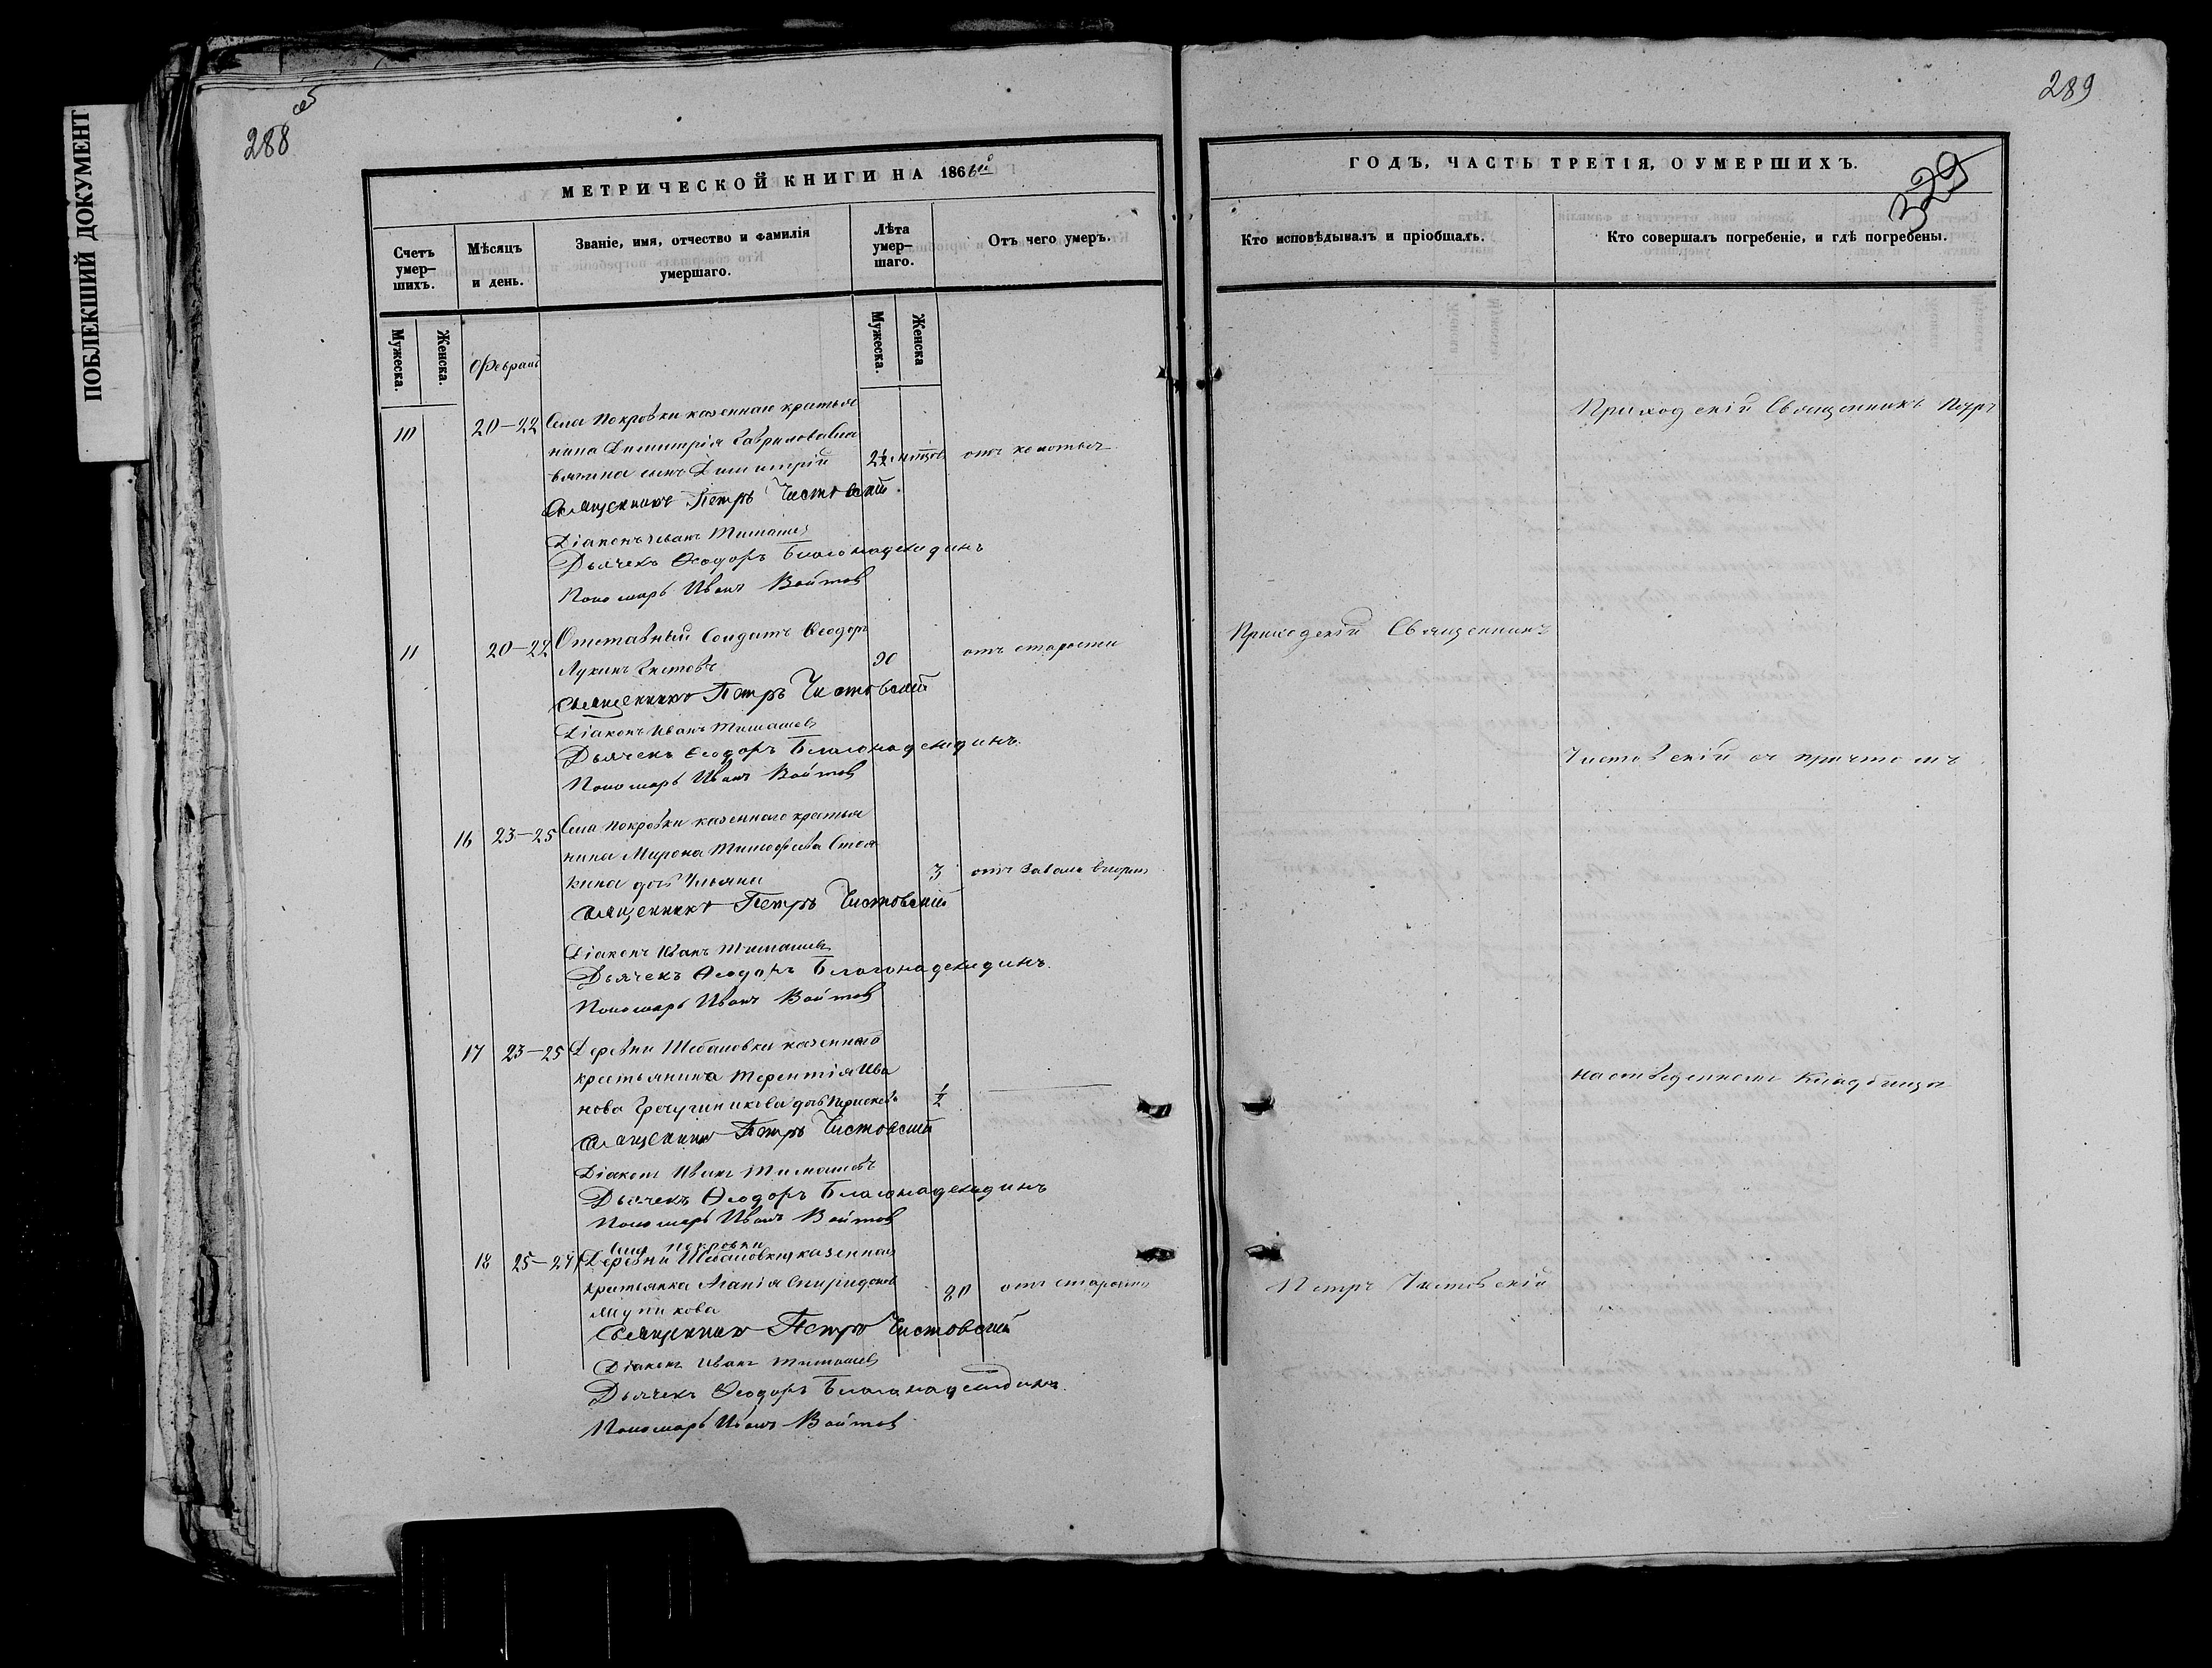 ПОБЛЕКШИЙ ДОКУМЕНТ
288
МЕТРИЧЕСКОЙ КНИГИ НА 1866й
Счетъ умер-шихъ.
Мѣсяцъ и день.
Званіе, имя, отчество и фамилія умершаго.
Лѣта умер-шаго.
Отъ чего умеръ.
Мужеска.
Женска.
Мужеска.
Женска
Февраль
10 20-22 Села Покровки казеннаго крестья
нина Димитрія Гаврилова
сынъ Димитрій 2½
Священникъ Петръ Чистовскій
Діаконъ Иванъ Тимашев
Дьячекъ Ѳеодоръ Благонадеждинъ
Пономарь Иванъ Войтов
11 20-22 Отставный Солдатъ Ѳеодоръ
Лукинъ 90 отъ старости
Священникъ Петръ Чистовскій
Діаконъ Иванъ Тимашев
Дьячекъ Ѳеодоръ Благонадеждинъ
Пономарь Иванъ Войтов
16 23-25 Села Покровки казеннаго крестья
нина Мирона Тимофеева
кина дочь Ульяна 3 отъ
Священникъ Петръ Чистовскій
Діаконъ Иванъ Тимашев
Дьячекъ Ѳеодоръ Благонадеждинъ
Пономарь Иванъ Войтов
17 23-25 Деревни казеннаго
крестьянина Терентія Ива
нова дочь ½
Священникъ Петръ Чистовскій
Діаконъ Иванъ Тимашевъ
Дьячекъ Ѳеодоръ Благонадеждинъ
Пономарь Иванъ Войтов
Села Покровки
18 25-27 Деревни казенная
крестьянка 80 отъ старости
Священникъ Петръ Чистовскій
Діаконъ Иванъ Тимашев
Дьячекъ Ѳеодоръ Благонадеждинъ
Пономарь Иванъ Войтов
289
329
ГОДЪ, ЧАСТЬ ТРЕТІЯ, О УМЕРШИХЪ.
Кто исповѣдывалъ и пріобщалъ.
Кто совершалъ погребеніе, и гдѣ погребены.
Приходскій Священникъ Петръ
Приходскій Священникъ
Чистовскій съ причтомъ
на отведенномъ кладбищѣ
Петръ Чистовскій